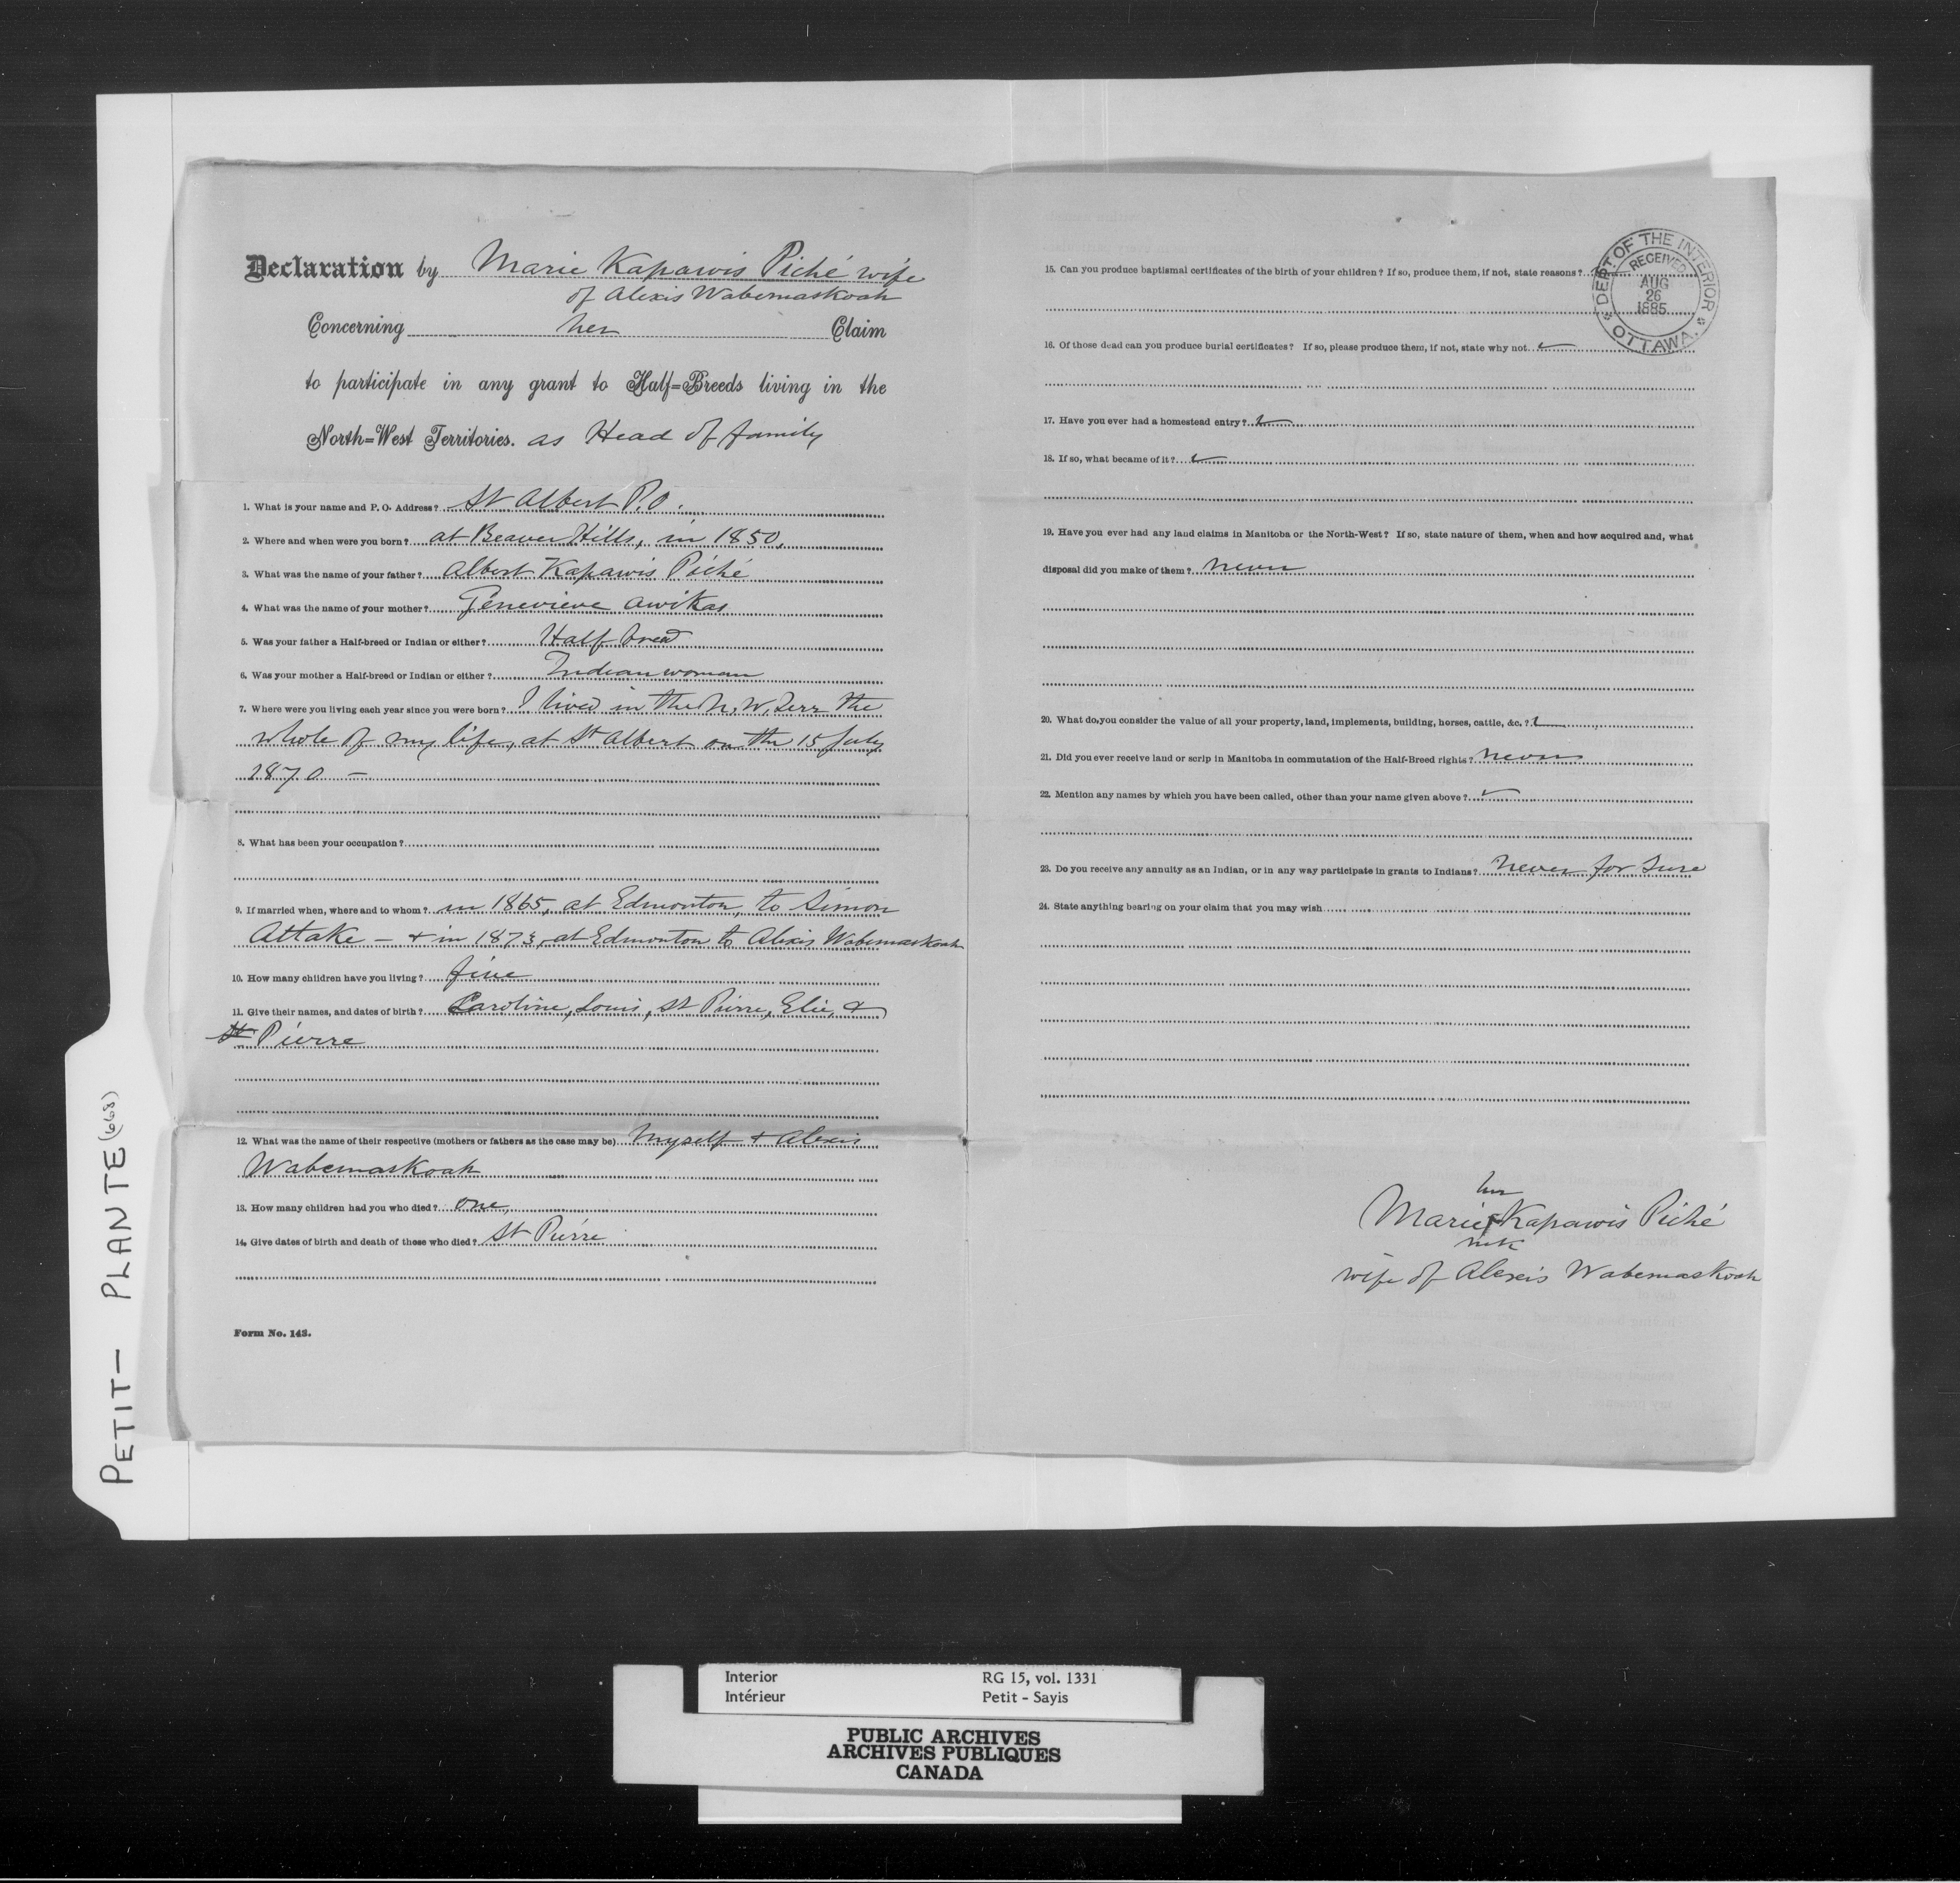 Declaration by Marie Kapawis Piché wife
of Alexis Wabemaskoah
Concerning her Claim
to participate in any grant to Half=Breeds living in the
North=West Territories. as Head of family
1. What is your name and P. O. Address? St Albert P.O.
2. Where and when were you born? at Beaver Hills, in 1850,
3. What was the name of your father? Albert Kapawis Piché
4. What was the name of your mother? Genevieve Awikas
5. Was your father a Half-breed or Indian or either? Half breed
6. Was your mother a Half-breed or Indian or either? Indian woman
7. Where were you living each year since you were born? I lived in the N. W. Terr the
whole of my life, at St Albert on the 15 July
1870 —
8. What has been your occupation?
9. If married when, where and to whom? in 1865, at Edmonton, to Simon
Attake — + in 1873, at Edmonton to Alexis Wabemaskoah
10. How many children have you living? five
11. Give their names, and dates of birth? Caroline, Louis, St Pierre, Elie, &
St Pierre
12. What was the name of their respective (mothers or fathers as the case may be) Myself + Alexis
Wabemaskoah
13. How many children had you who died? one,
14. Give dates of birth and death of those who died? St Pierre
Form No. 143.
15. Can you produce baptismal certificates of the birth of your children? If so, produce them, if not, state reasons?
16. Of those dead can you produce burial certificates? If so, please produce them, if not, state why not.
17. Have you ever had a homestead entry?
18. If so, what became of it?
19. Have you ever had any land claims in Manitoba or the North-West? If so, state nature of them, when and how acquired and, what
disposal did you make of them? never
20. What do you consider the value of all your property, land, implements, building, horses, cattle, &c.?
21. Did you ever receive land or scrip in Manitoba in commutation of the Half-Breed rights? never
22. Mention any names by which you have been called, other than your name given above?
23. Do you receive any annuity as an Indian, or in any way participate in grants to Indians? never for sure
24. State anything bearing on your claim that you may wish
her
Marie X Kapawis Piché
mk
wife of Alexis Wabemaskoah
DEPT OF THE INTERIOR
RECEIVED
AUG
26
1885
OTTAWA.
PETIT - PLANTE (668)
Interior RG 15, vol. 1331
Intérieur Petit - Sayis
PUBLIC ARCHIVES
ARCHIVES PUBLIQUES
CANADA